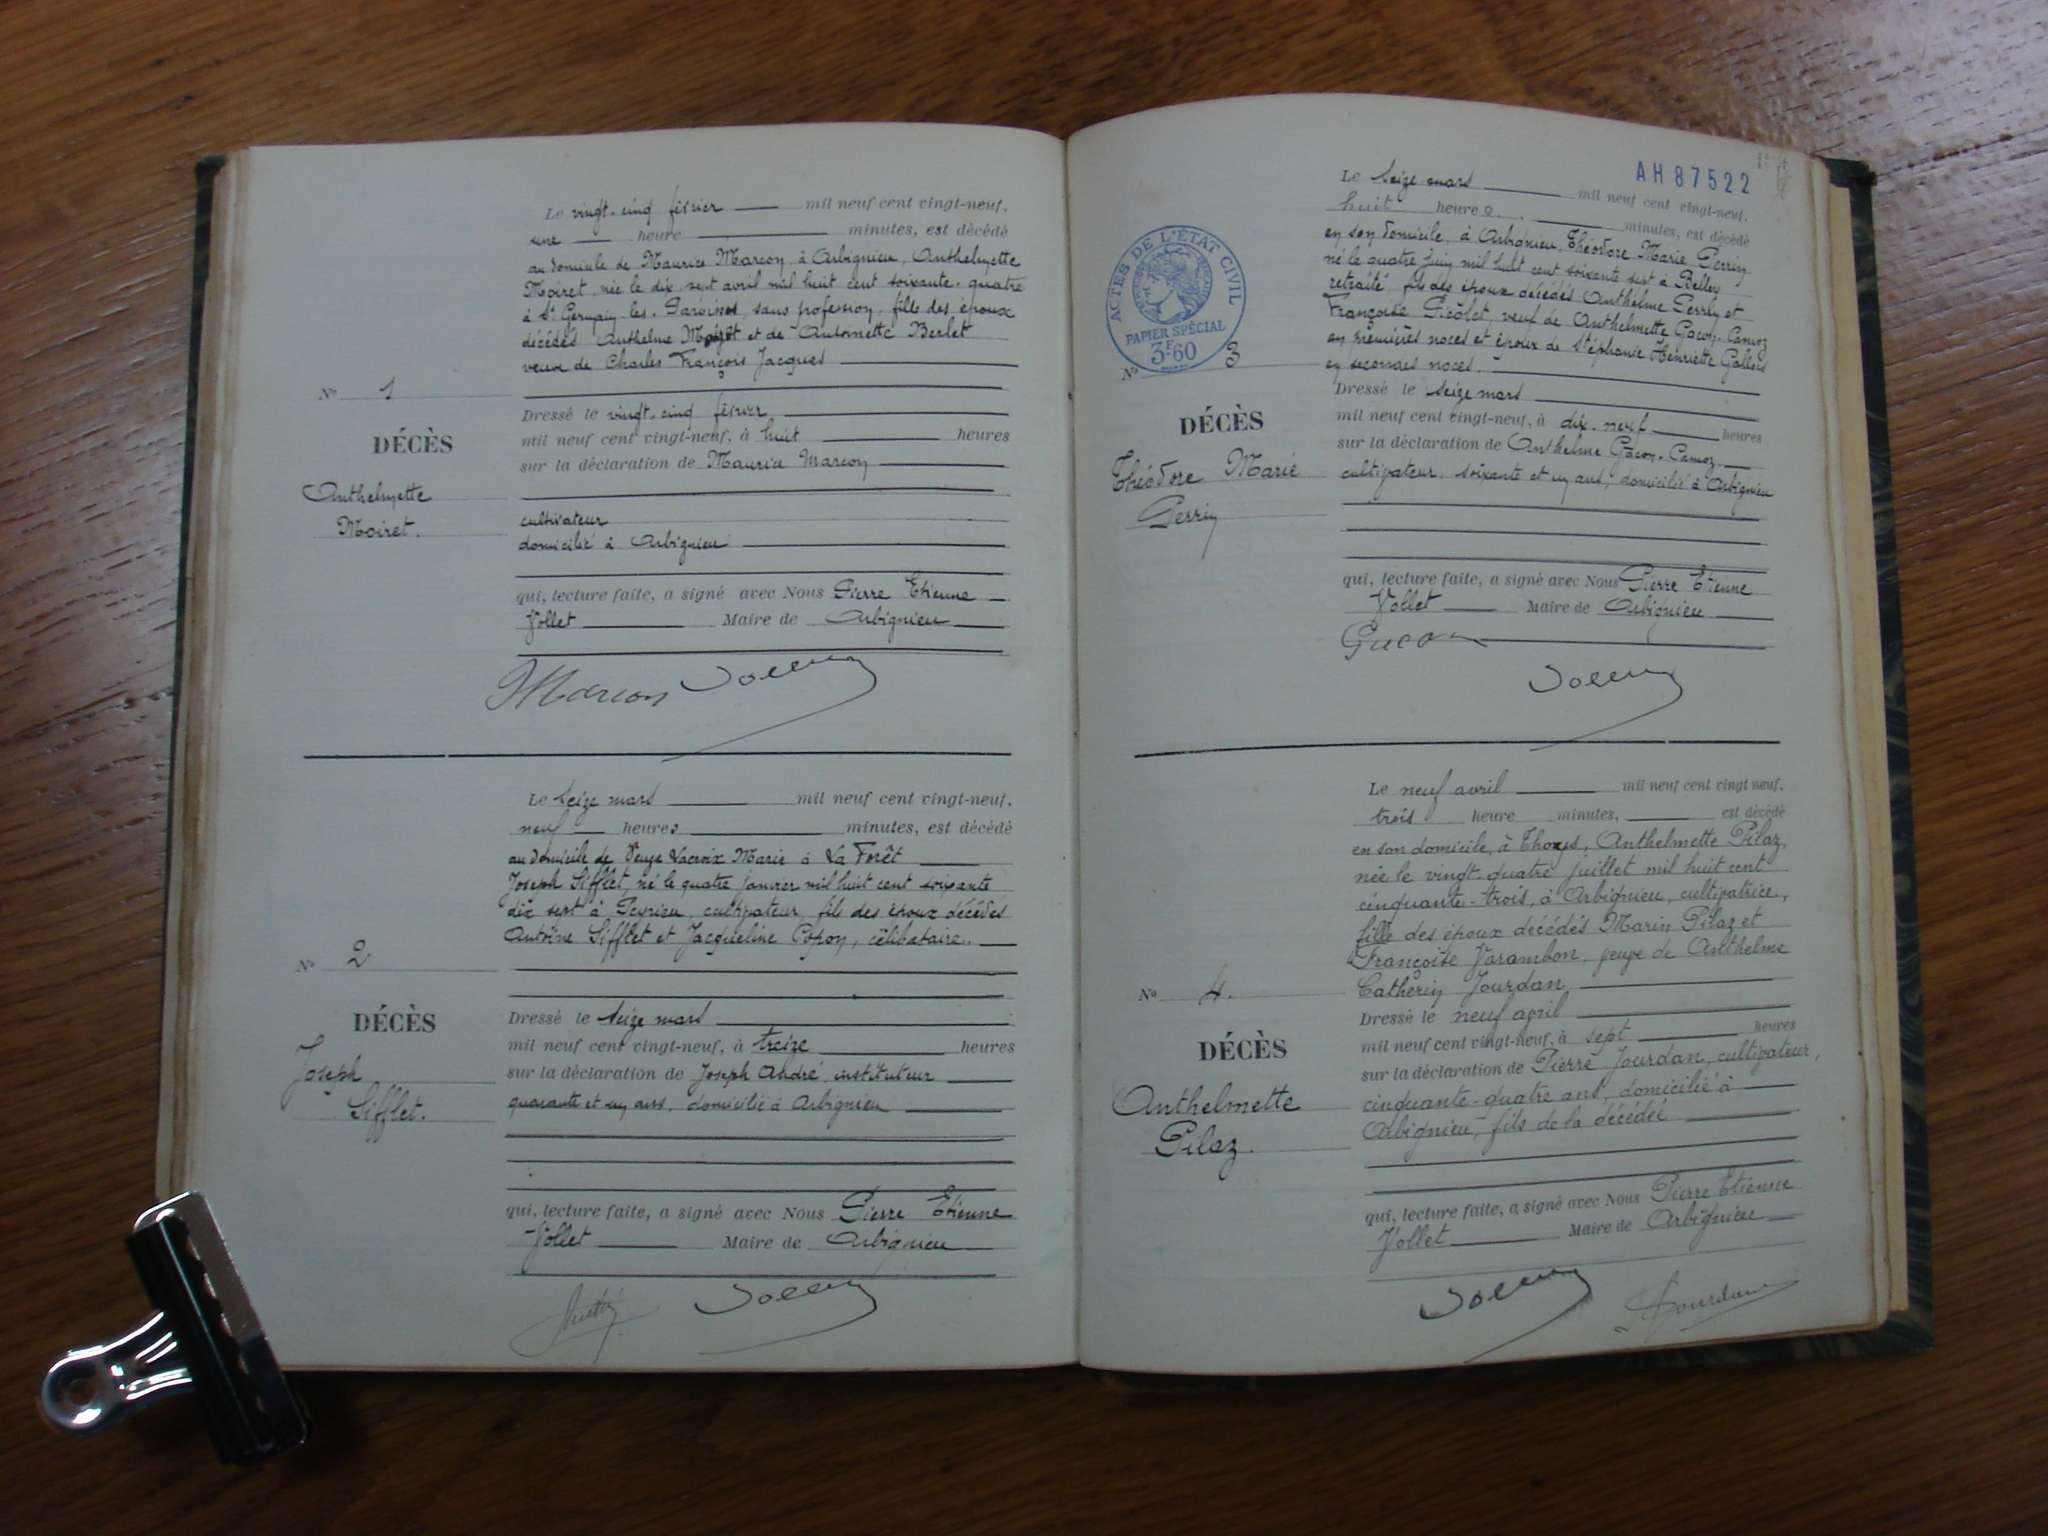 Le vingt-cinq février mil neuf cent vingt-neuf,
une heure minutes, est décédé
au domicile de Maurice Marcon, à Arbignieu, Anthelmette
Moiret, née le dix-sept avril mil huit cent soixante-quatre
à St Germain-les-Paroisses, sans profession, fille des époux
décédés Anthelme Moiret et de Antoinette Berlet
veuve de Charles François Jacques
Nº 1
DÉCÈS
Anthelmette
Moiret.
Dressé le vingt-cinq février
mil neuf cent vingt-neuf, à huit heures
sur la déclaration de Maurice Marcon
cultivateur
domicilié à Arbignieu
qui, lecture faite, a signé avec Nous Pierre Etienne
Vollet Maire de Arbignieu
Marcon Vollet
Le seize mars mil neuf cent vingt-neuf,
neuf heures minutes, est décédé
au domicile de Veuve Lacroix Marie à La Forêt
Joseph Sifflet, né le quatre janvier mil huit cent soixante
dix sept à Peyrieu, cultivateur, fils des époux décédés
Antoine Sifflet et Jacqueline Popon, célibataire.
Nº 2
DÉCÈS
Joseph
Sifflet.
Dressé le seize mars
mil neuf cent vingt-neuf, à treize heures
sur la déclaration de Joseph André, instituteur
quarante et un ans, domicilié à Arbignieu
qui, lecture faite, a signé avec Nous Pierre Etienne
Vollet Maire de Arbignieu
André Vollet
AH 87522
ACTES DE L'ÉTAT CIVIL
PAPIER SPÉCIAL
3F60
Le seize mars mil neuf cent vingt-neuf,
huit heures minutes, est décédé
en son domicile, à Arbignieu, Théodore Marie Perrin
né le quatre juin mil huit cent soixante sept à Belley
retraité, fils des époux décédés Anthelme Perrin et
Françoise Picolet, veuf de Anthelmette Gacon-Camoz
en premières noces et époux de Stéphanie Henriette Gallois
en secondes noces.
Nº 3
DÉCÈS
Théodore Marie
Perrin
Dressé le seize mars
mil neuf cent vingt-neuf, à dix-neuf heures
sur la déclaration de Anthelme Gacon-Camoz
cultivateur, soixante et un ans, domicilié à Arbignieu
qui, lecture faite, a signé avec Nous Pierre Etienne
Vollet Maire de Arbignieu
Gacon
Vollet
Le neuf avril mil neuf cent vingt-neuf,
trois heure minutes, est décédé
en son domicile, à Thoys, Anthelmette Pilaz,
née le vingt-quatre juillet mil huit cent
cinquante-trois, à Arbignieu, cultivatrice,
fille des époux décédés Marin Pilaz et
Françoise Varambon, veuve de Anthelme
Catherin Jourdan
Nº 4.
DÉCÈS
Anthelmette
Pilaz.
Dressé le neuf avril
mil neuf cent vingt-neuf, à sept heures
sur la déclaration de Pierre Jourdan, cultivateur,
cinquante-quatre ans, domicilié à
Arbignieu, fils de la décédée
qui, lecture faite, a signé avec Nous Pierre Etienne
Vollet Maire de Arbignieu
Vollet Jourdan